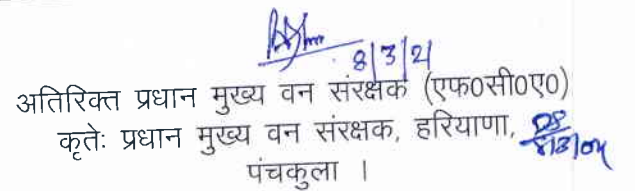 8/3/21
अतिरिक्त प्रधान मुख्य वन संरक्षक (एफ0सी0ए0)
कृतेः प्रधान मुख्य वन संरक्षक, हरियाणा,
पंचकुला ।